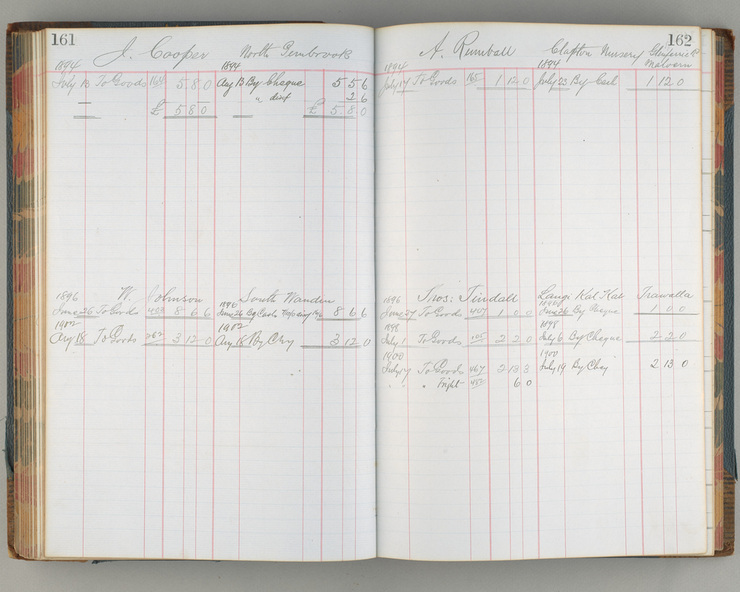 161
J. Cooper North Pembrook
1894 1894
July 13 To Goods 164 5 8 0 Aug 13 By Cheque 5 5 6
" dist 2 6
£ 5 8 0 £ 5 8 0
1896 W. Johnson South Wandin
June 26 To Goods 453 8 6 6 1896 June 26 By Cash 8 6 6
1902 1902
Aug 18 To Goods 262 3 12 0 Aug 18 By Chq 3 12 0
162
A. Rumball Clapton Nursery Glenferrie Rd
Malvern
1894 1894
July 17 To Goods 165 1 12 0 July 23 By Cash 1 12 0
1896 Thos: Tindall Langi Kal Kal Trawalla
1896
June 27 To Goods 457 1 0 0 June 26 By Cheque 1 0 0
1898 1898
July 1 To Goods 105 2 2 0 July 6 By Cheque 2 2 0
1900 1900
July 17 To Goods 467 2 13 3 July 19 By Chq 2 13 0
" " Fright 453 6 0